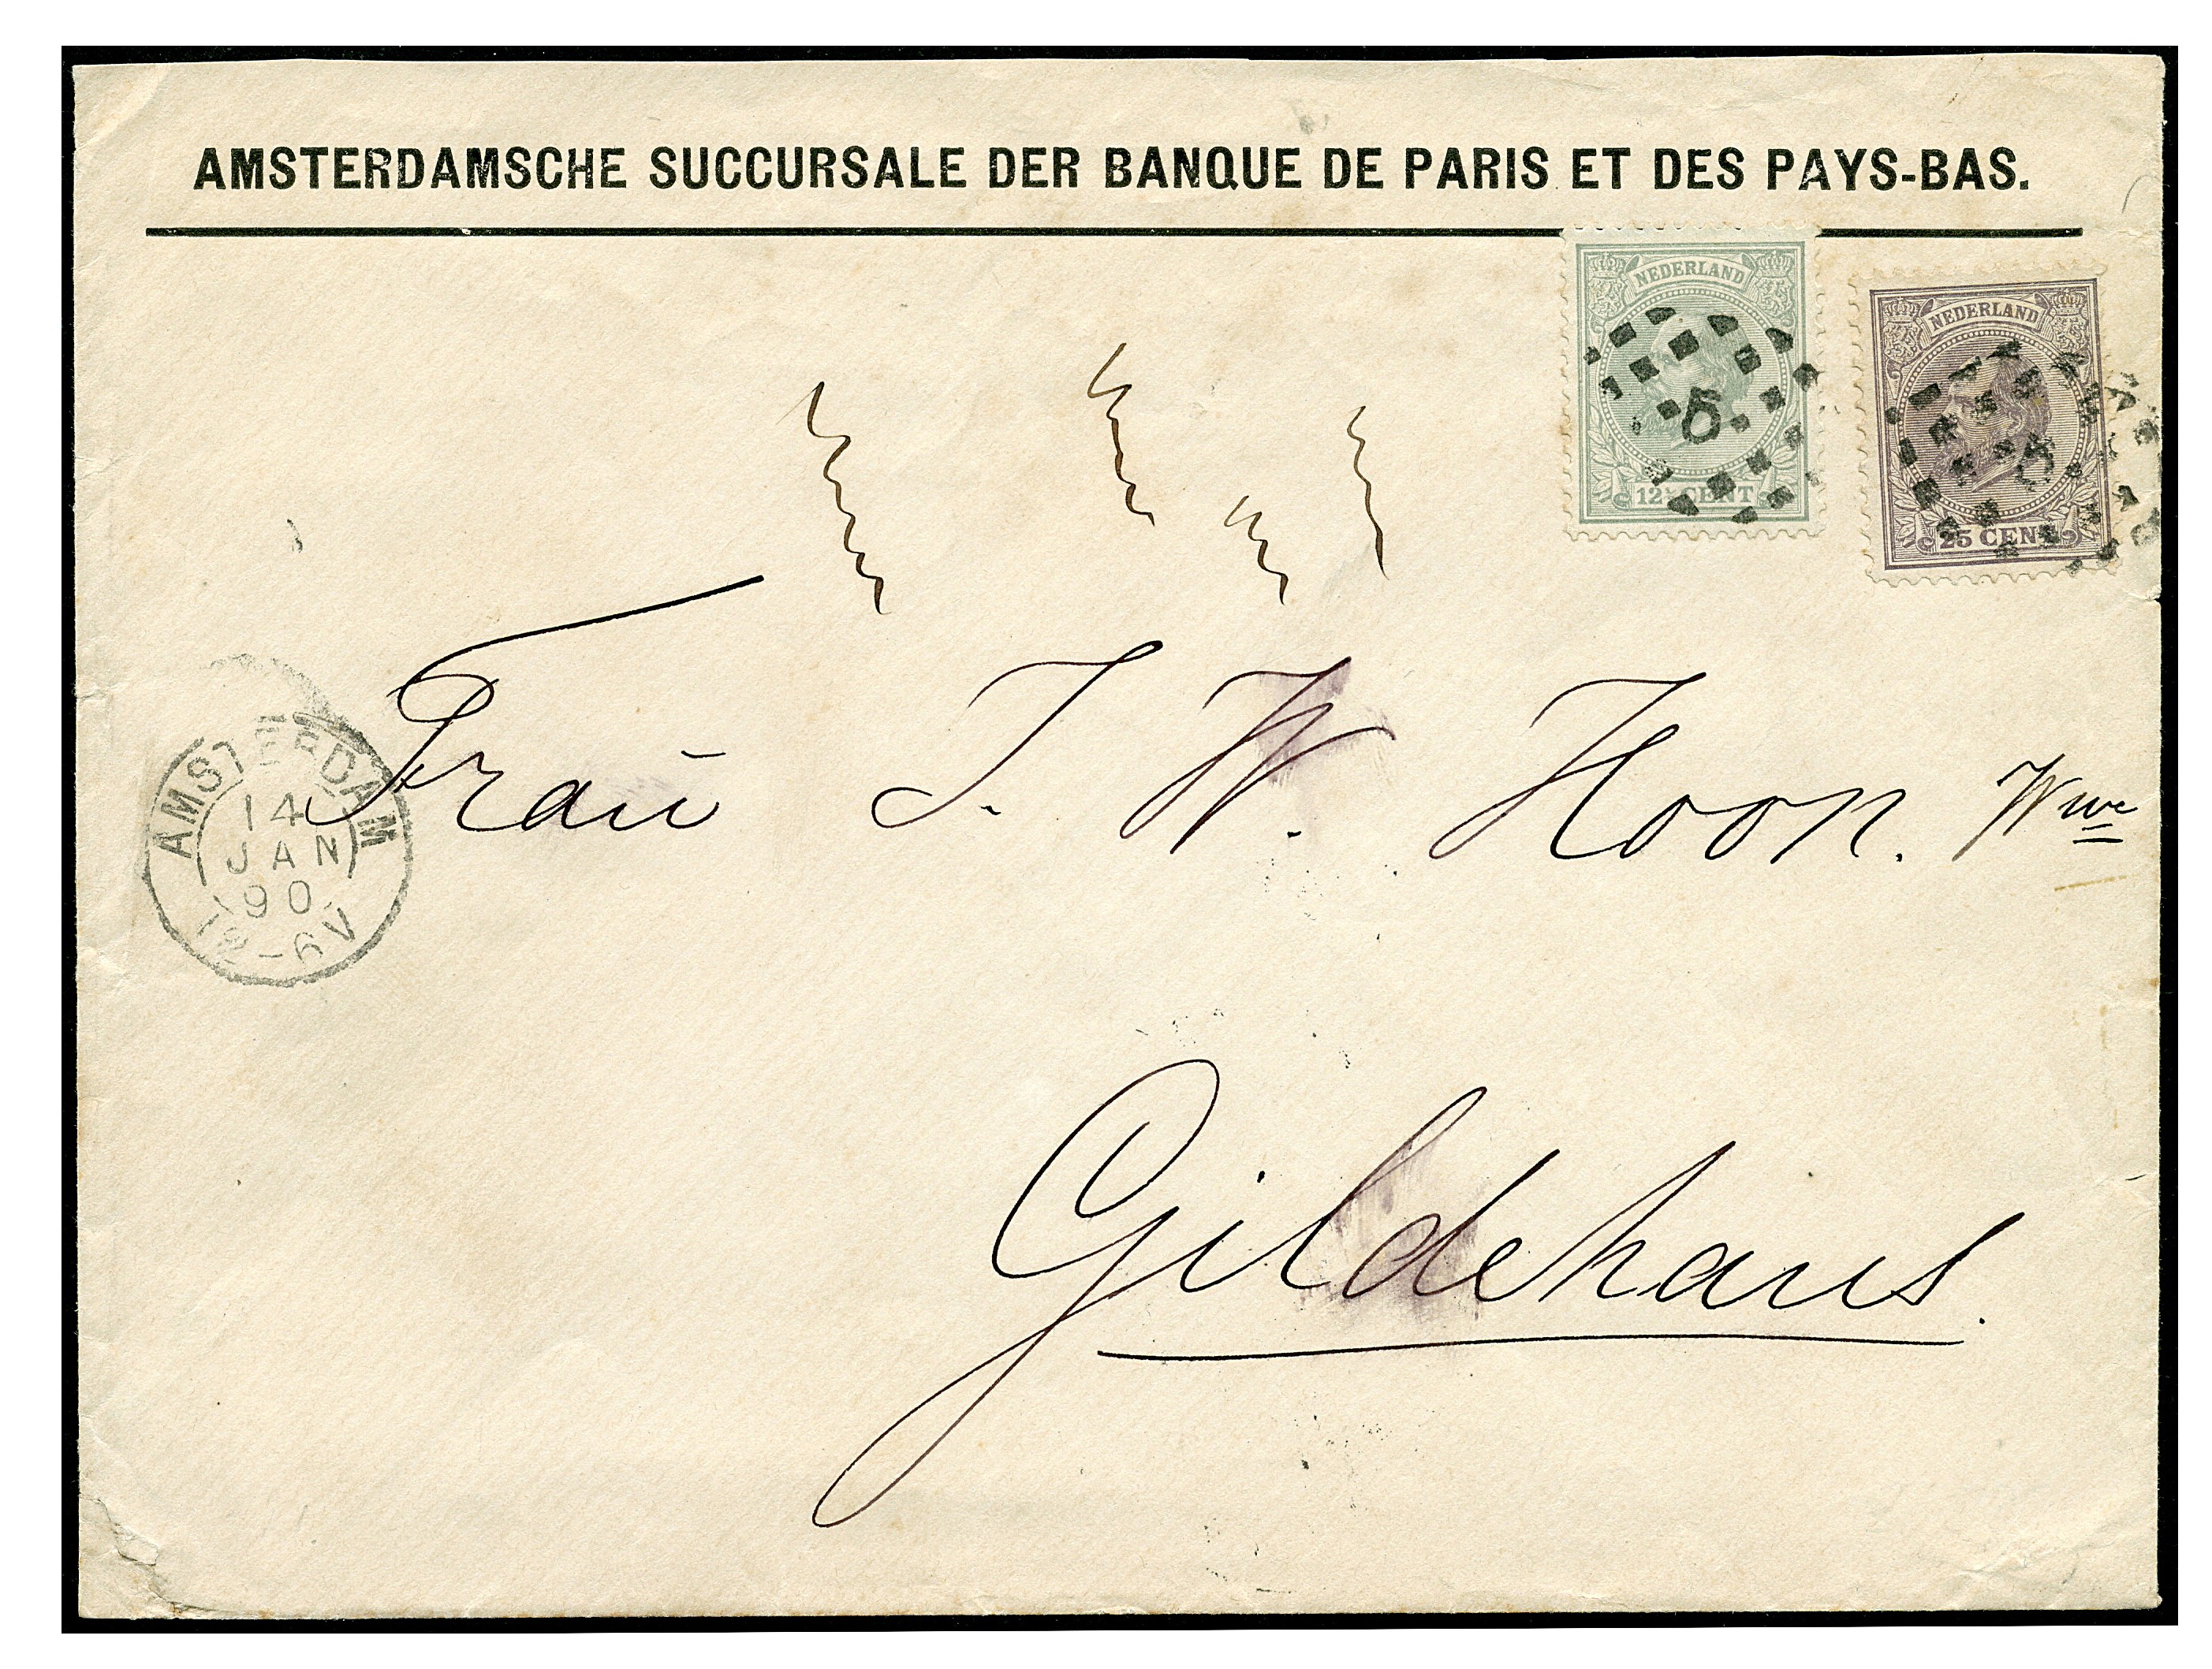 AMSTERDAMSCHE SUCCURSALE DER BANQUE DE PARIS ET DES PAYS-BAS.
NEDERLAND
12½ CENT
NEDERLAND
25 CENT
Frau J. W. Koon. Wwe
AMSTERDAM
14
JAN
90
12-6V
Gildehaus.